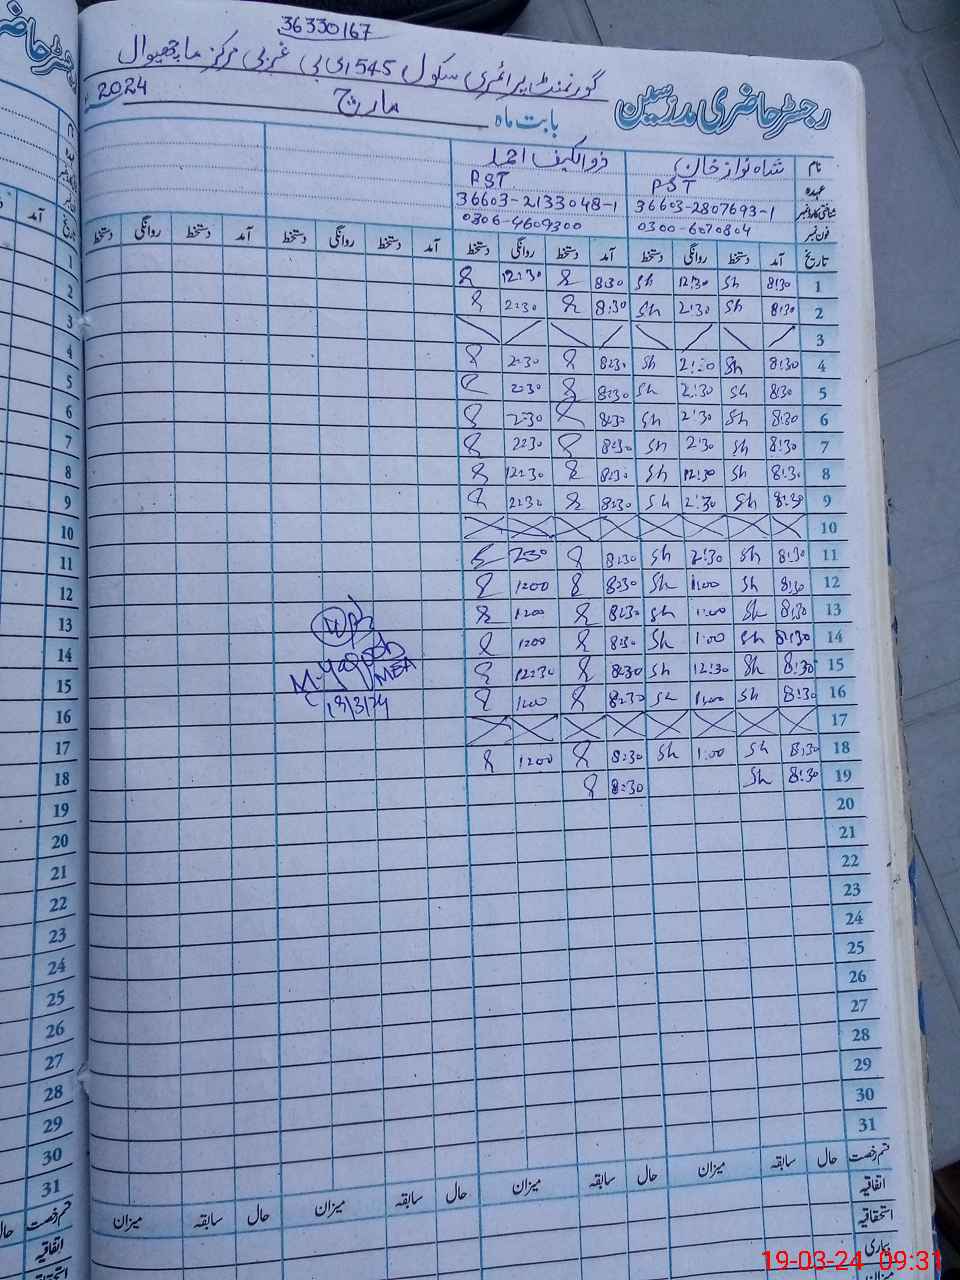 36330167
گورنمنٹ پرائمری سکول 545 ای بی غربی مرکز ماچھیوال
رجسٹر حاضری مدرسین بابت ماہ مارچ 2024
نام شاہ نواز خان ذوالکیف احمد
عہدہ PST PST
شناختی کارڈ نمبر 36603-2807693-1 36603-2133048-1
فون نمبر 0300-6070804 0306-4609300
تاریخ آمد دستخط روانگی دستخط آمد دستخط روانگی دستخط آمد دستخط روانگی دستخط آمد دستخط روانگی دستخط
1 8:30 Sh 12:30 Sh 8:30 12:30
2 8:30 Sh 2:30 Sh 8:30 2:30
3
4 8:30 Sh 2:30 Sh 8:30 2:30
5 8:30 Sh 2:30 Sh 8:30 2:30
6 8:30 Sh 2:30 Sh 8:30 2:30
7 8:30 Sh 2:30 Sh 8:30 2:30
8 8:30 Sh 12:30 Sh 8:30 12:30
9 8:30 Sh 2:30 Sh 8:30 2:30
10
11 8:30 Sh 2:30 Sh 8:30 2:30
12 8:30 Sh 1:00 Sh 8:30 1:00
13 8:30 Sh 1:00 Sh 8:30 1:00
14 8:30 Sh 1:00 Sh 8:30 1:00
15 8:30 Sh 12:30 Sh 8:30 12:30
16 8:30 Sh 1:00 Sh 8:30 1:00
17
18 8:30 Sh 1:00 Sh 8:30 1:00
19 8:30 Sh 8:30
20
21
22
23
24
25
26
27
28
29
30
31
MEA
قسم رخصت حال سابقہ میزان حال سابقہ میزان حال سابقہ میزان حال سابقہ میزان
اتفاقیہ
استحقاقیہ
بیماری
میزان
رجسٹر حاضر
آمد تاریخ
1
2
3
4
5
6
7
8
9
10
11
12
13
14
15
16
17
18
19
20
21
22
23
24
25
26
27
28
29
30
31
قسم رخصت حال
اتفاقیہ
19-03-24 09:31